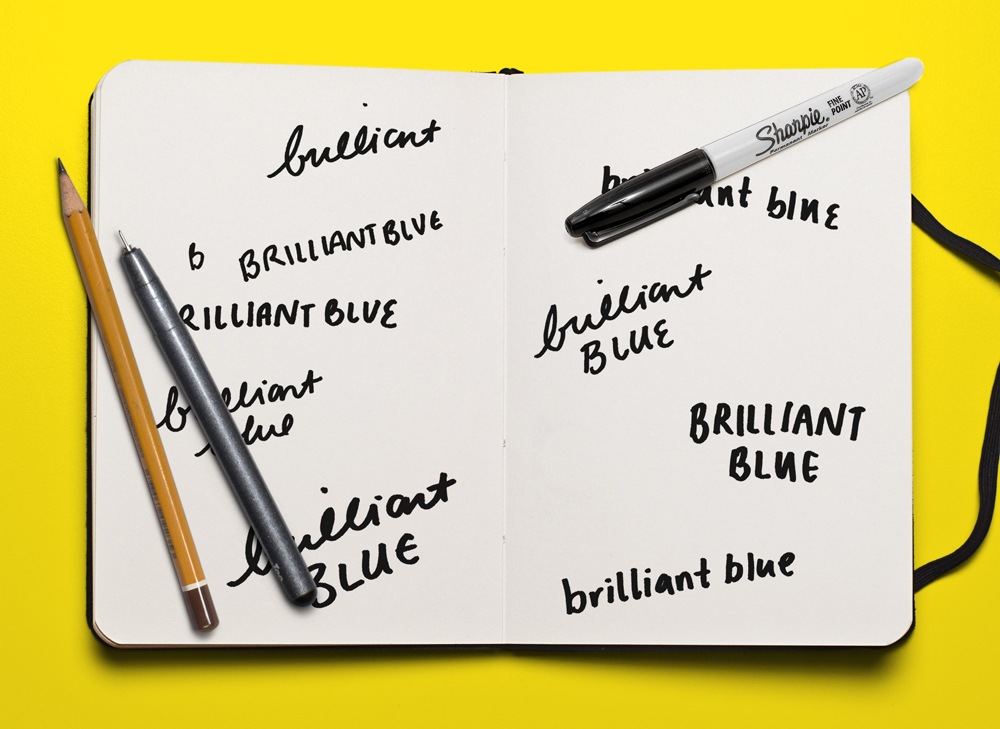 brilliant
b BRILLIANT BLUE
RILLIANT BLUE
brilliant
blue
brilliant
BLUE
Sharpie
Permanent Marker
FINE
POINT
AP
ant blue
brilliant
BLUE
BRILLIANT
BLUE
brilliant blue